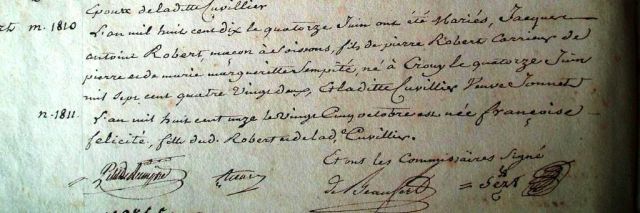 Epouse de laditte Cuvillier
m. 1810 L'an mil huit cent dix le quatorze Juin ont été Mariés, Jacques
antoine Robert, maçon à Soissons, fils de pierre Robert Carrieur de
pierre et de marie margueritte Sempité, né à Crouy le quatorze Juin
mil sept cent quatre Vingt deux, Et laditte Cuvillier Veuve Jonnet
n. 1811. L'an mil huit cent onze le Vingt Cinq octobre est née françoise
felicité, fille dud. Robert et de lad.e Cuvillier.
Et ont les Commissaires Signé
de Beaufort